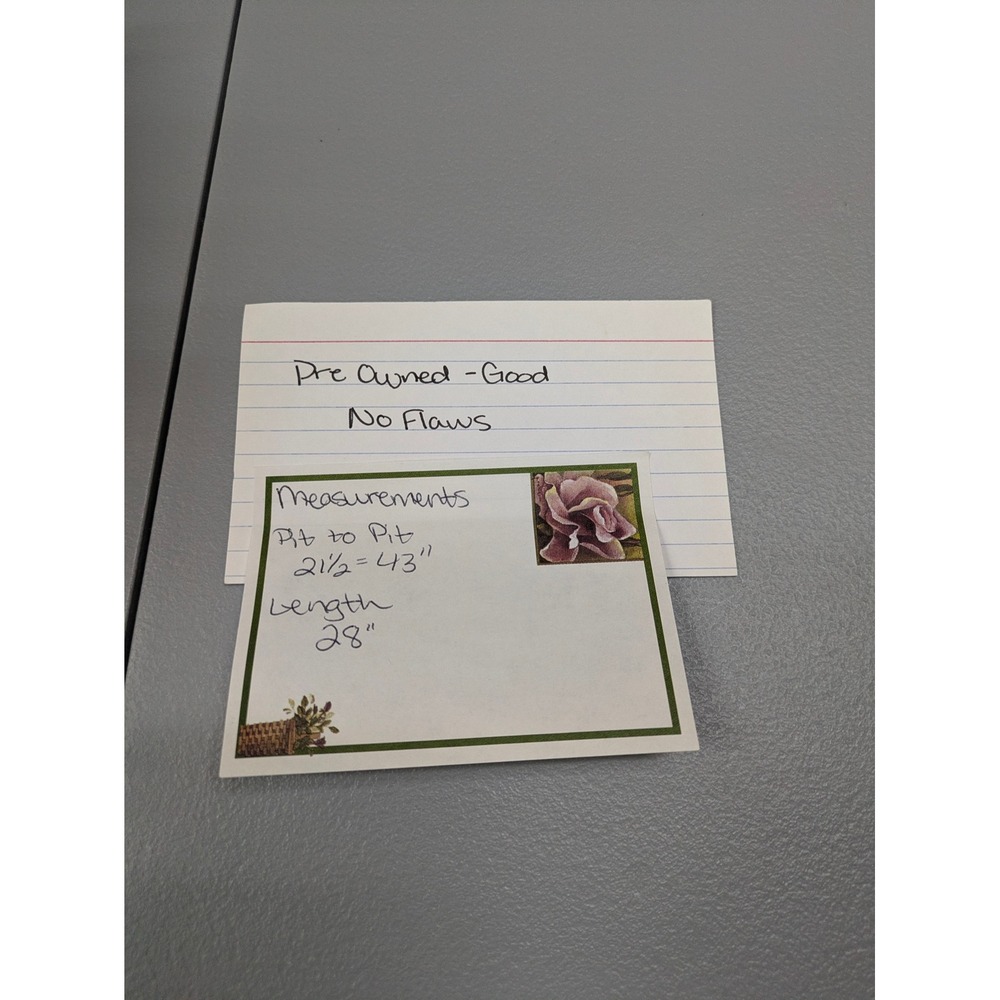 Pre Owned - Good
No Flaws
Measurements
Pit to Pit
21½ = 43"
Length
28"